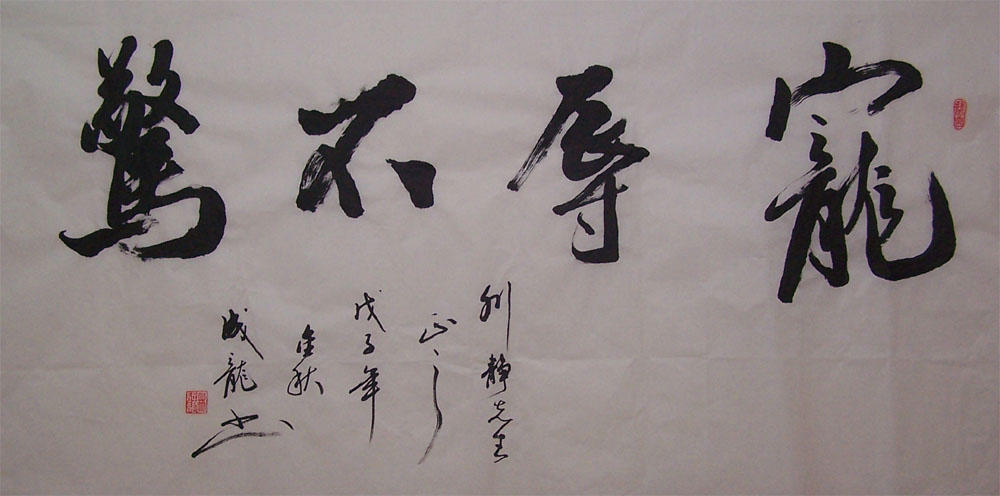 寵辱不驚
川靜先生
正之
戊子年
金秋
成龍書